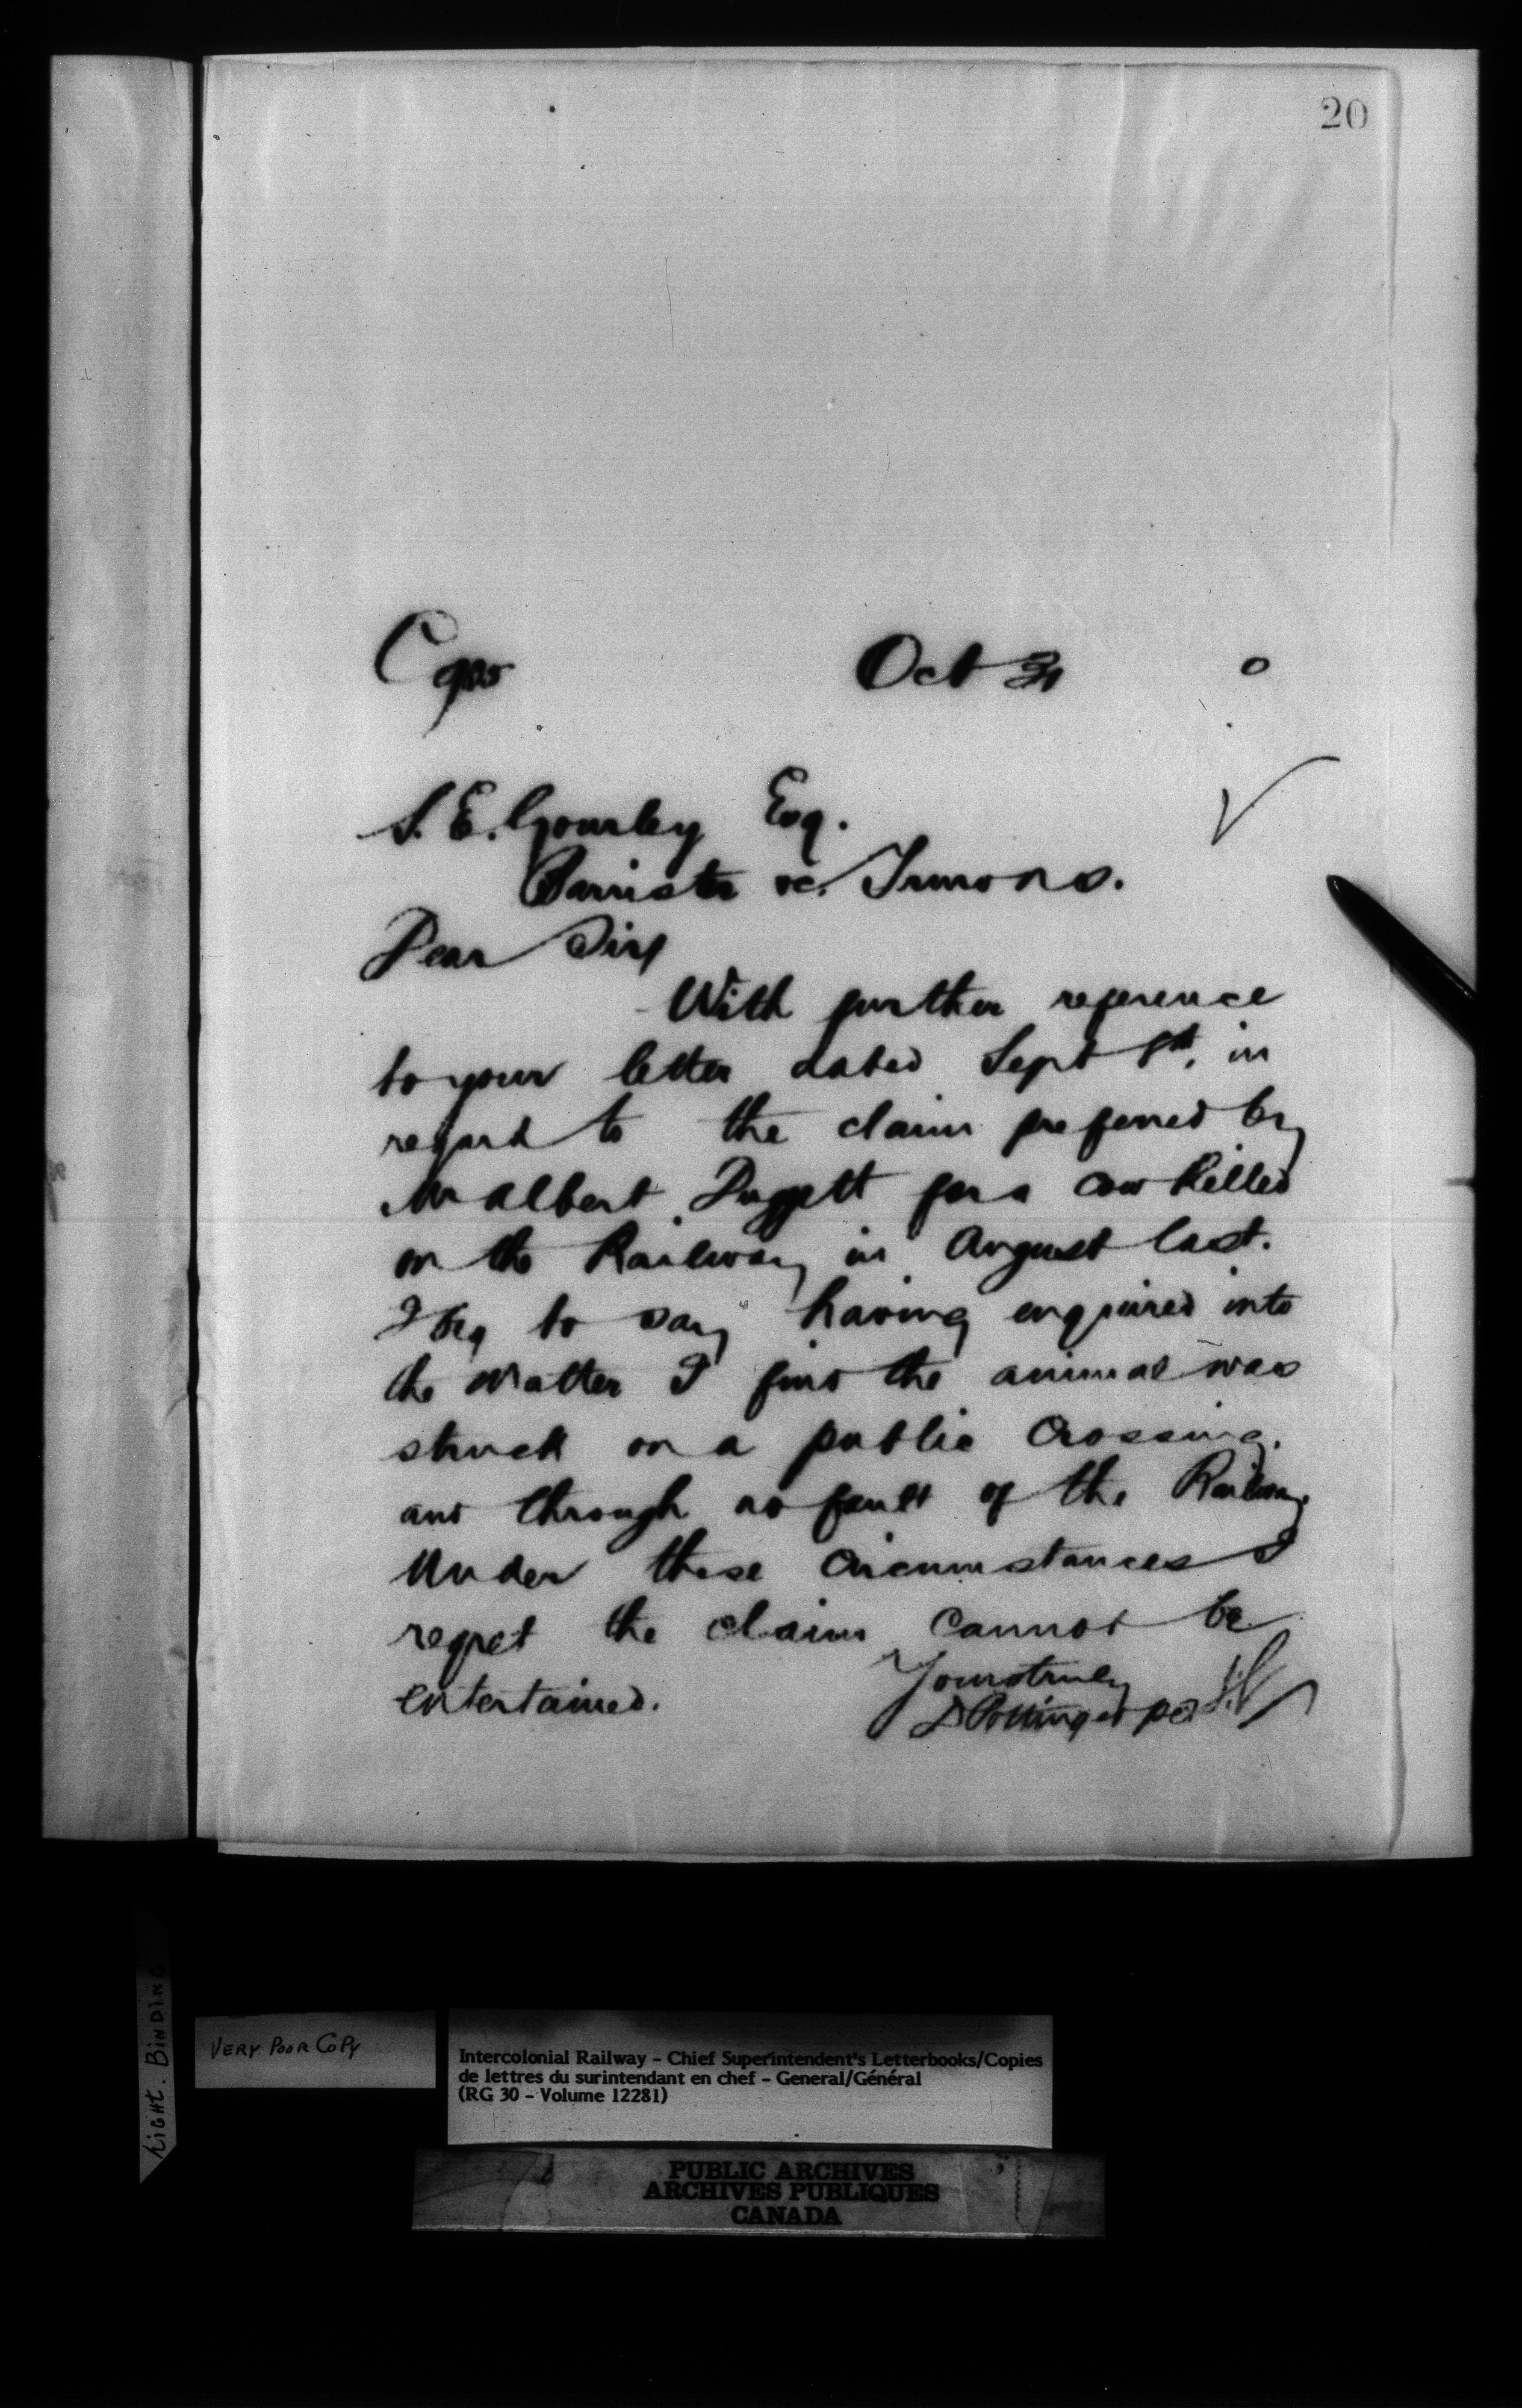 20
Oct 31 0
S. E. Gourley Esq.
Barrister &c. Truro N.S.
Dear Sir
With further reference
to your letter dated Sept 8th, in
regard to the claim preferred by
Mr Albert Duggett for a cow killed
on the Railway in August last.
I beg to say having enquired into
the matter I find the animal was
struck on a public crossing.
and through no fault of the Railway.
Under these circumstances I
regret the claim cannot be
entertained.
Yours truly
D Pottinger per
VERY POOR COPY
TIGHT. BINDING
Intercolonial Railway – Chief Superintendent's Letterbooks/Copies
de lettres du surintendant en chef – General/Général
(RG 30 – Volume 12281)
PUBLIC ARCHIVES
ARCHIVES PUBLIQUES
CANADA